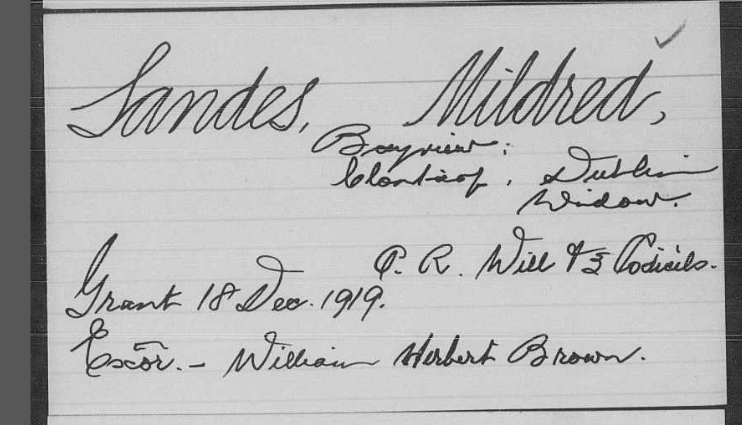 Sandes, Mildred,
Bayview;
Clontarf, Dublin
Widow.
P. R. Will & 3 Codicils.
Grant 18 Dec. 1919.
Excōr. - William Herbert Brown.